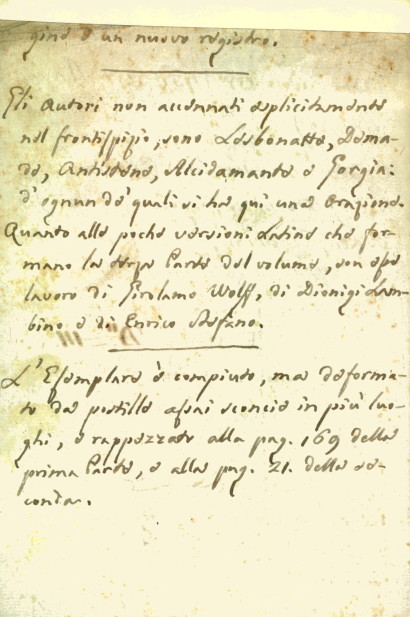 gine e un nuovo registro.
Gli Autori non accennati esplicitamente
nel frontispizio, sono Lesbonatte, Dema-
de, Antistene, Alcidamante e Gorgia:
d'ognun de' quali si ha qui una orazione.
Quanto alle poche versioni Latine che for-
mano la terza Parte del volume, son esse
lavoro di Girolamo Wolff, di Dionigi Lam-
bino e di Enrico Stefano.
L'Esemplare è compiuto, ma deforma-
to da postille assai sconcie in più luo-
ghi, e rappezzato alla pag. 169 della
prima Parte, e alla pag. 21. della se-
conda.